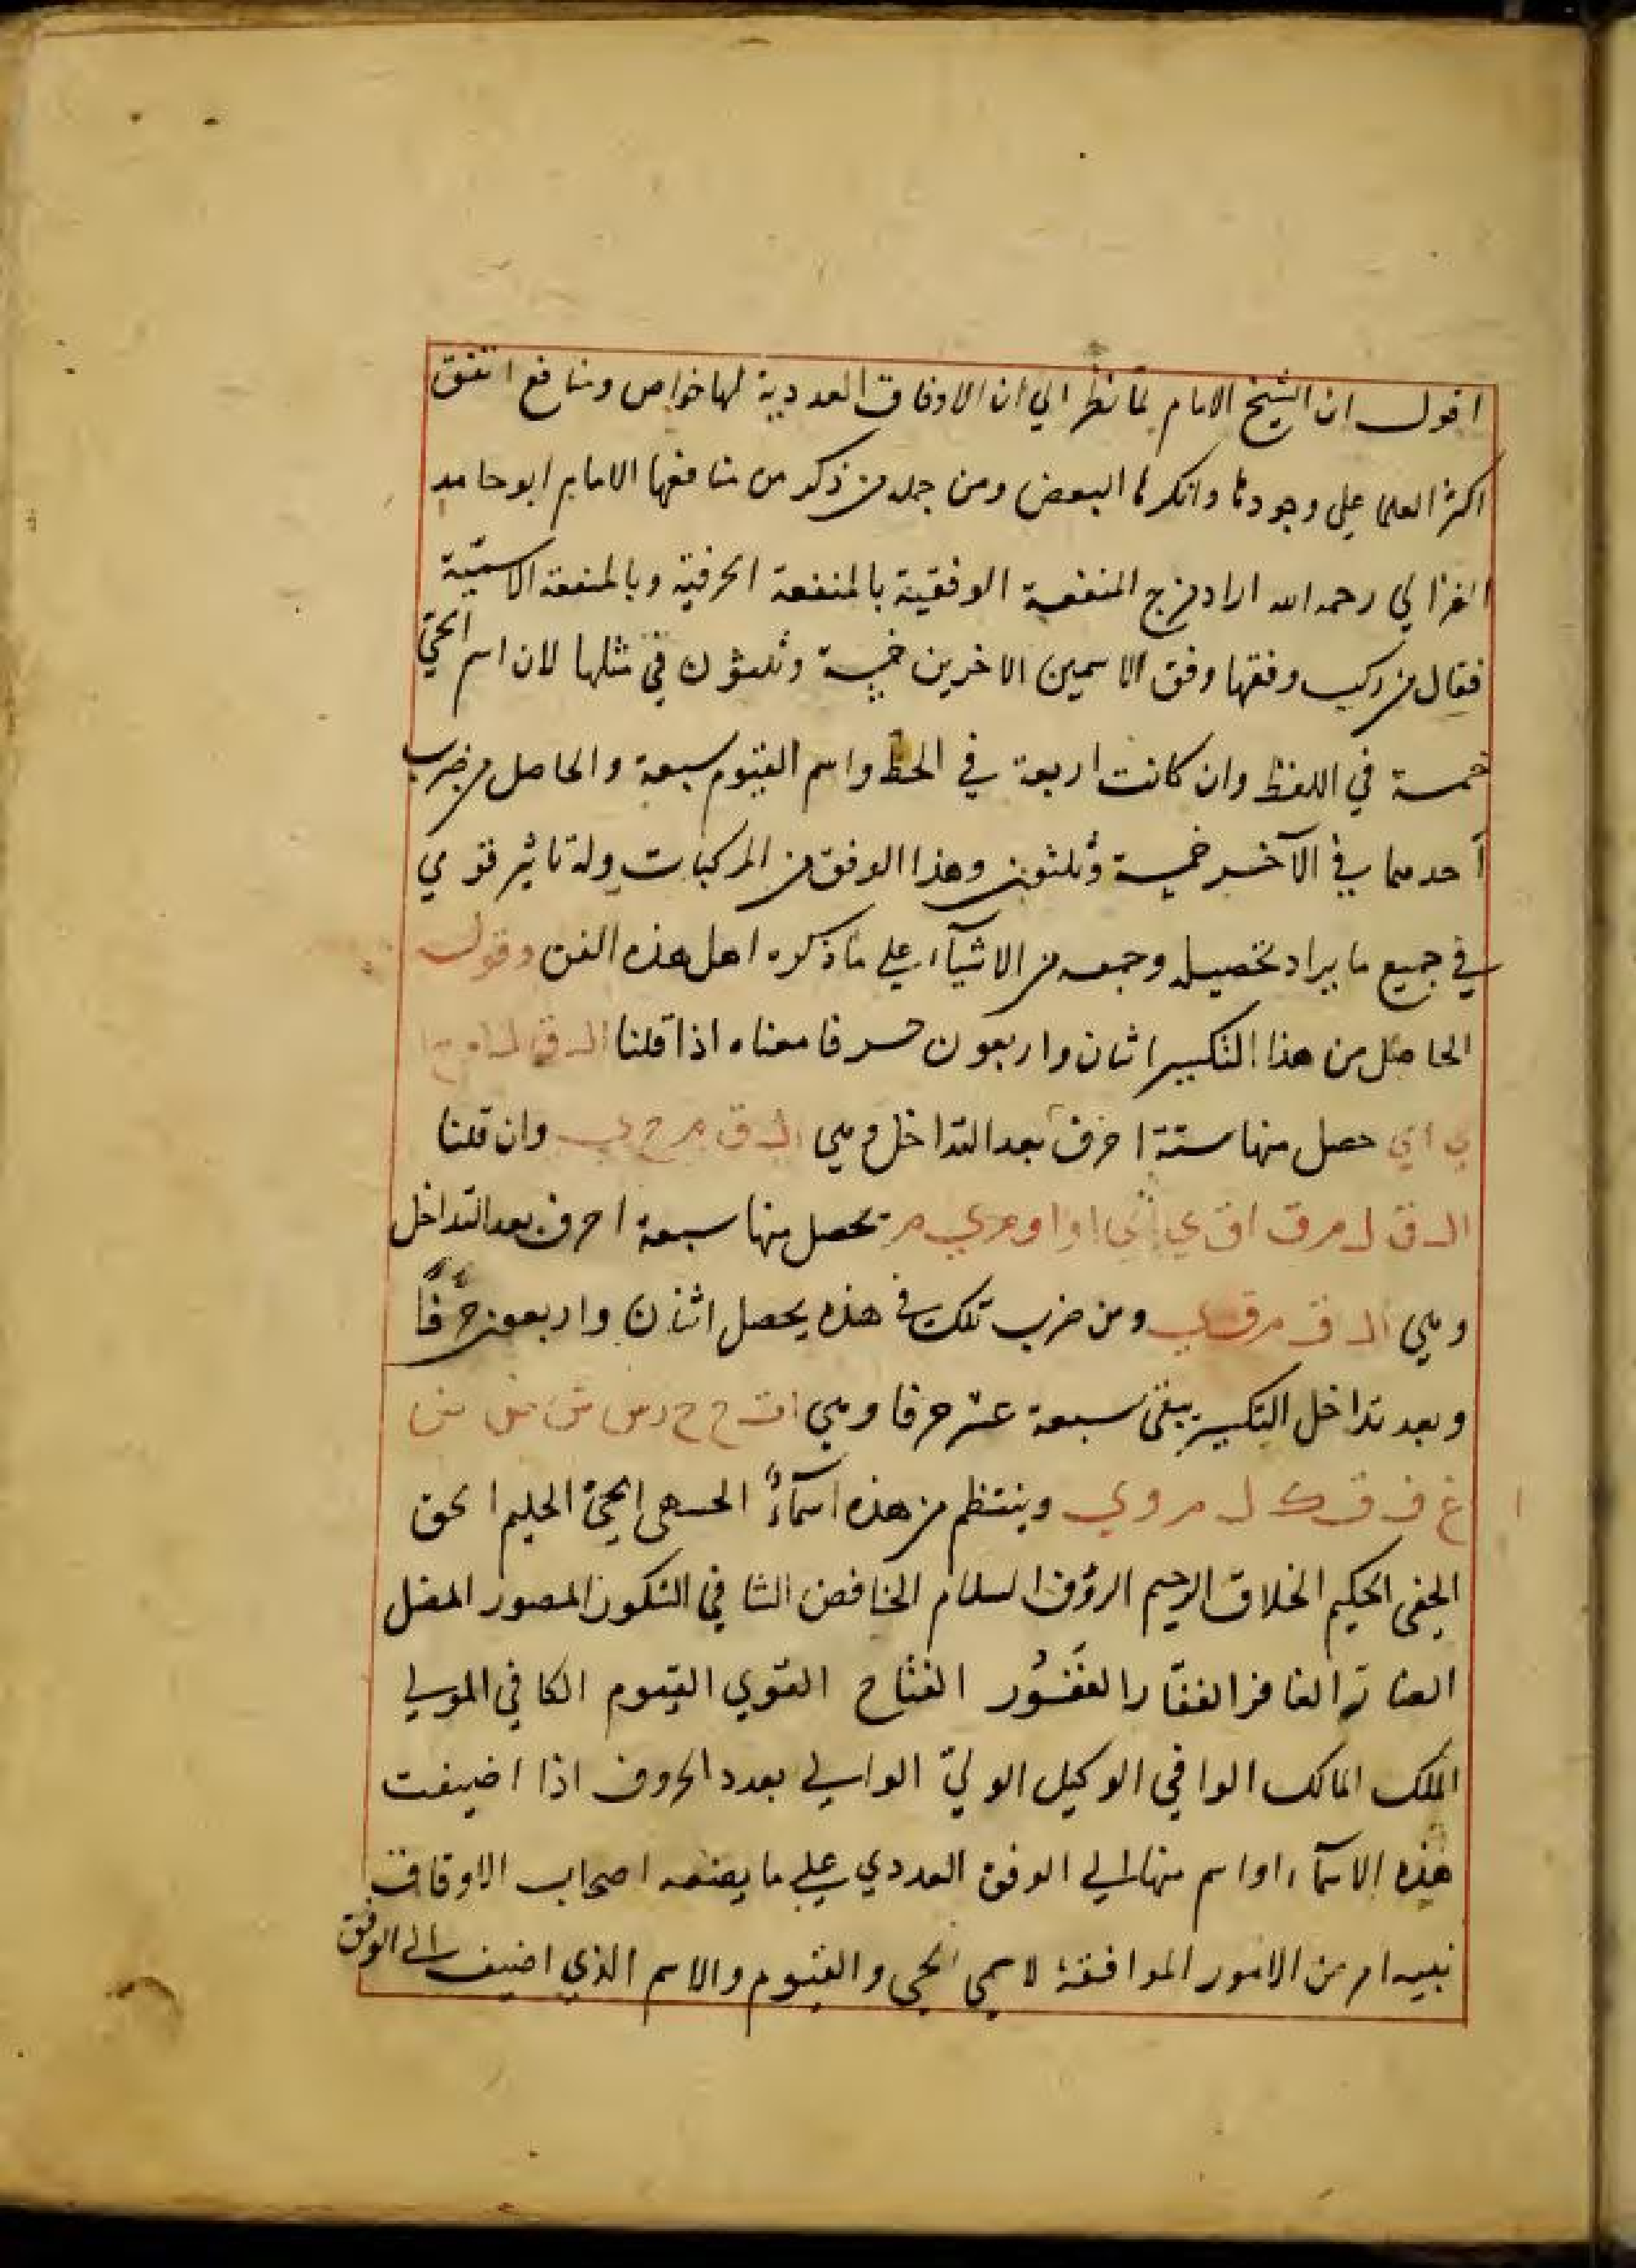 اقول ان الشيخ الامام لما نظر الي ان الاوفاق العددية لها خواص ومنافع اتفق
اكثر العلما علي وجودها وانكرها البعض ومن جملة من ذكر من منافعها الامام ابو حامد
الغزالي رحمه الله اراد مزج المنفعة الوفقية بالمنفعة الحرفية وبالمنفعة الاسمية
فقال من ركب وفقها وفق الاسمين الاخرين خمسة وثلثون في مثلها لان اسم الحي
خمسة في اللفظ وان كانت اربعة في الخط واسم القيوم سبعة والحاصل من ضرب
احدهما في الآخر خمسة وثلثون وهذا الوفق من المركبات وله تاثير قوي
في جميع ما يراد تحصيله وجمعه من الاشيآء علي ما ذكره اهل هذه الفن وقوله
الحاصل من هذا التكسير اثنان واربعون حرفا معناه اذا قلنا
حصل منها ستة احرف بعد التداخل وهي ال ف م ح ي وان قلنا
ال ف ل م ق ا ف ي ا ي ا و ا و م ي م يحصل منها سبعة احرف بعد التداخل
وهي ال ف م ق ي ومن ضرب تلك في هذه يحصل اثنان واربعون حرفًا
وبعد تداخل التكسير يبقي سبعة عشر حرفا وهي ا ت ح خ ر س ش ص ض
غ ف ق ك ل م و ي وينتظم من هذه اسمآء الحسني الحي الحليم الحق
الخفي الحكيم الخلاق الرحيم الرؤف السلام الخافض الشافي الشكور المصور المفضل
الغافر الغفّار الغَفُور الفتاح القوي القيوم الكافي المولي
الملك المالك الوافي الوكيل الوليّ الوالي بعدد الحروف اذا اضيفت
هذه الاسمآء او اسم منها الي الوفق العددي علي ما يصنعه اصحاب الاوفاق
من الامور الموافقة لاسمي الحي والقيوم والاسم الذي اضيف الي الوفق